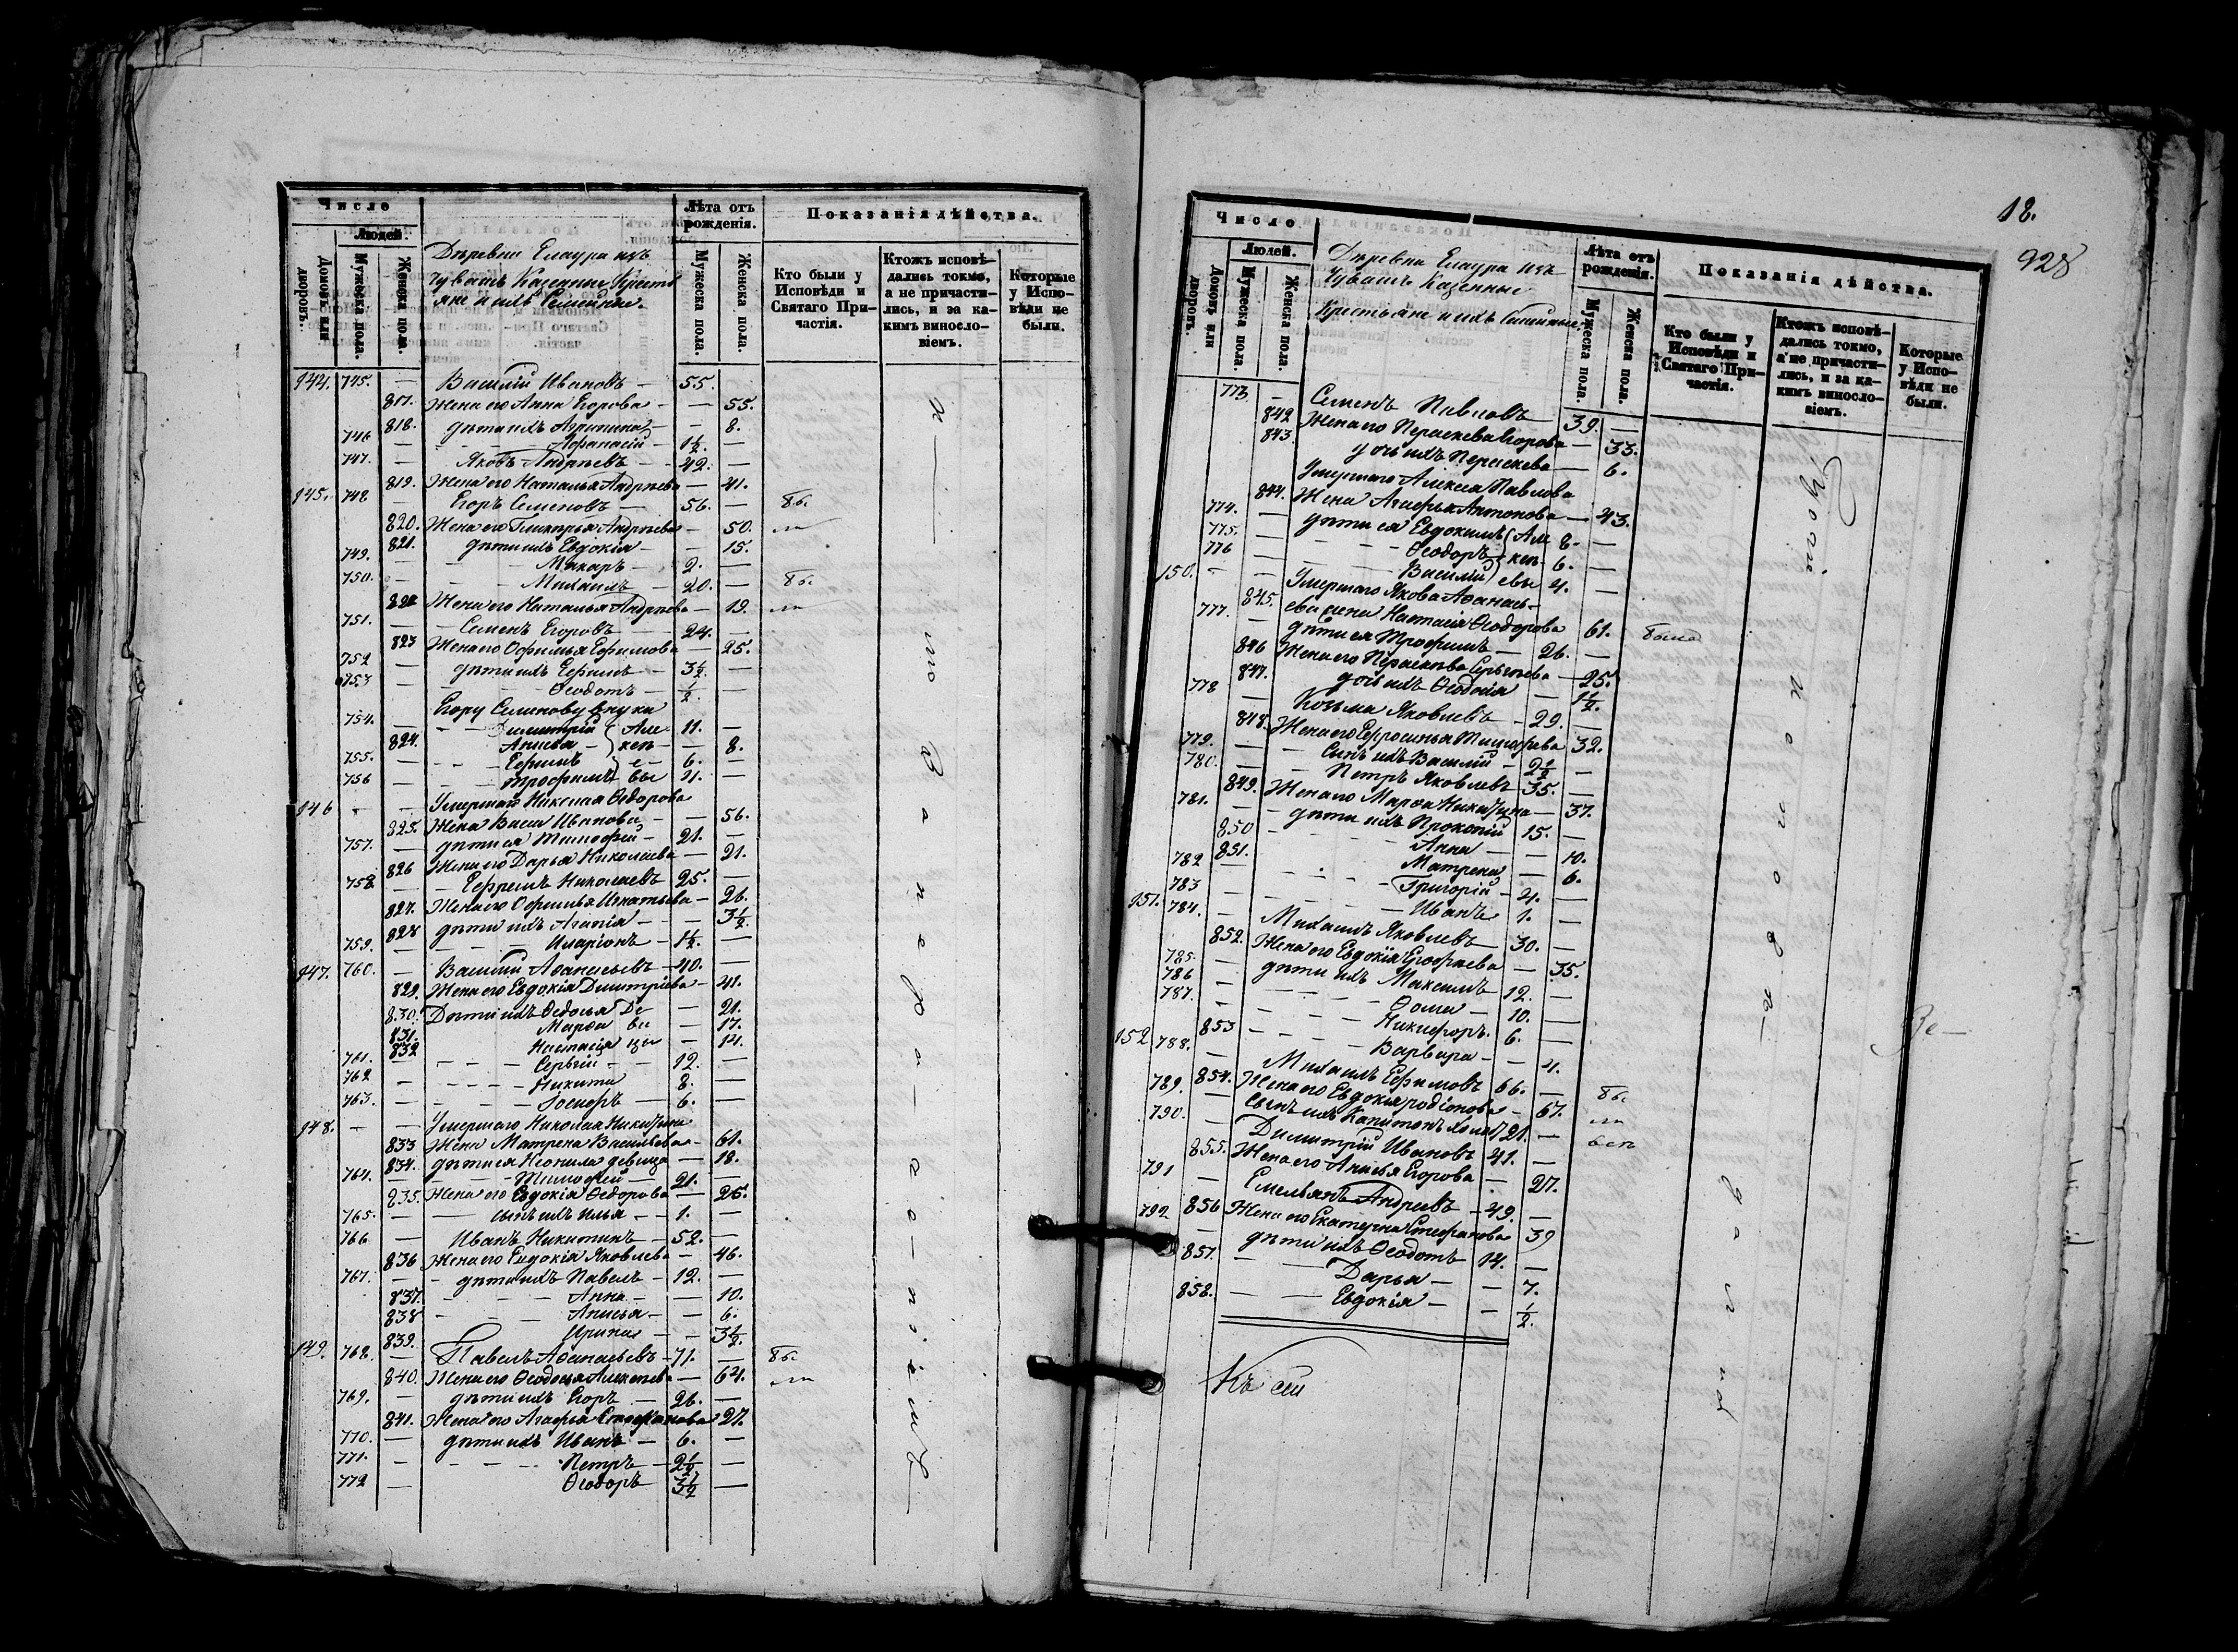 Число
Людей.
Домовъ или дворовъ.
Мужеска пола.
Женска пола.
Деревни Елаура изъ
Чувашъ Казенные Кресть
яне и ихъ Семейные.
Лѣта отъ рожденія.
Мужеска пола.
Женска пола.
Показанія дѣйства.
Кто были у Исповѣди и Святаго Причастія.
Ктожъ исповѣдались токмо, а не причастились, и за какимъ винословіемъ.
Которые у Исповѣди не были.
144. 745. — Василій Ивановъ — 55.
817. Жена его Анна Егорова — — 55.
818. дѣти ихъ Агрипина — — 8.
746 — Афанасій — 1½.
747. — Яковъ Андреевъ — 42. —
819. Жена его Наталья Андреева — 41.
145. 748 — Егоръ Семеновъ — 56. — бы
820. Жена его Гликерья Андреева — 50. ли
821. дѣти ихъ Евдокія — — 15.
749. — Макаръ — 2. —
750. — Михаилъ — 20. — бы
822 Жена его Наталья Андреева — 19. ли
751. — Семенъ Егоровъ — 24. —
823 Жена его Офимья Ефимова — 25.
752 — дѣти ихъ Ефимъ — 3½. —
753 — Ѳеодотъ — ½. —
Егору Семенову внуки
754. — Димитрій Але 11. —
824. Анисья — ксѣ — 8.
755. — Ефимъ е 6. —
756 — Трофимъ вы 21. —
146 — — Умершаго Николая Ѳедорова
825. Жена Васса Иванова — — 56.
757. — дѣти ея Тимофей — 21. —
826 Жена его Дарья Николаева — 21.
758 — Ефремъ Николаевъ 25. —
827. Жена его Офимья Игнатьева — 26.
828 дѣти ихъ Агапія — — 3½.
759. — Иларіонъ — 1½. —
147. 760. — Василій Аѳанасьевъ — 40. —
829. Жена его Евдокія Димитріева — 41.
830. Дѣти ихъ Ѳедосья Дѣ — 21.
831. Марѳа ви — 17.
832 Настасія цы — 14.
761. — Сергій — 12. —
762 — Никита 8. —
763. — Іосифъ — 6. —
148. — — Умершаго Николая Никитина
833 Жена Матрена Васильева — 61.
834. дѣти ея Неонила девица — 18.
764. — Тимофей — 21. —
835. Жена его Евдокія Ѳедорова — 25.
765. — сынъ ихъ Илья — 1. —
766 — Иванъ Никитинъ — 52. —
836 Жена его Евдокія Яковлева — 46.
767. — дѣти ихъ Павелъ — 12. —
837. Анна — — 10.
838 Анисья — — 6.
839. Ирина — — 3½.
149. 768. — Павелъ Аѳанасьевъ — 71. — бы
840. Жена его Ѳеодосья Алексеева — 64. ли
769. — дѣти ихъ Егоръ — 26. —
841. Жена его Агафья Стефанова 27.
770. — дѣти ихъ Иванъ — 6. —
771. — Петръ — 2½ —
772 — Ѳеодоръ 3½ —
18.
928
Число
Людей.
Домовъ или дворовъ.
Мужеска пола
Женска пола.
Деревни Елаура изъ
Чувашъ Казенные
Крестьяне и ихъ Семейные.
Лѣта отъ рожденія.
Мужеска пола.
Женска пола.
Показанія дѣйства.
Кто были у Исповѣди и Святаго Причастія.
Ктожъ исповѣдались токмо, а не причастились, и за какимъ винословіемъ.
Которые у Исповѣди не были.
773 — Семенъ Павловъ 39. —
842 Жена его Параскева Егорова — 33.
843 дочь ихъ Параскева — 6.
Умершаго Алексея Павлова
844. Жена Агафья Антонова — 43.
774. — дѣти ея Евдокимъ Але 8. —
775. — Ѳеодоръ ксѣ 6. —
776 — Василій евы 4. —
150. — — Умершаго Якова Аѳанась-
845. ева жена Настасія Ѳеодорова 61. была
777. — дѣти ея Трофимъ — 26. —
846 Жена его Параскева Сергеева — 25.
847. дочь ихъ Ѳеодосія — 1½.
778 Козьма Яковлевъ — 29. —
848. Жена его Ефросинья Тимофеева 32.
779. — Сынъ ихъ Василій — 2½ —
780. — Петръ Яковлевъ — 35. —
849. Жена его Марѳа Никитина — 37.
781. — дѣти ихъ Прокопій 15. —
850 — Анна — 10.
851. Матрена 6.
782 — Григорій — 4. —
783 — Иванъ 1. —
151. 784. — Михаилъ Яковлевъ — 30. —
852. Жена его Евдокія Ерофеева — 35.
785 — дѣти ихъ Максимъ 12. —
786 — Ѳома — 10. —
787. — Никифоръ. 6. —
853 — Варвара — — 4.
152 788. — Михаилъ Ефимовъ 66. — бы
854. Жена его Евдокія Родіонова — 67. ли
789. — Сынъ ихъ Капитонъ холос 21. — всѣ
790. — Димитрій Ивановъ 41. —
855. Жена его Анисья Егорова — 27.
791 — Емельянъ Андреевъ — 49. —
856 Жена его Екатерина Стефанова 39
792 — дѣти ихъ Ѳеодотъ 14. —
857. Дарья — — 7.
858. Евдокія — — ½.
Къ сей